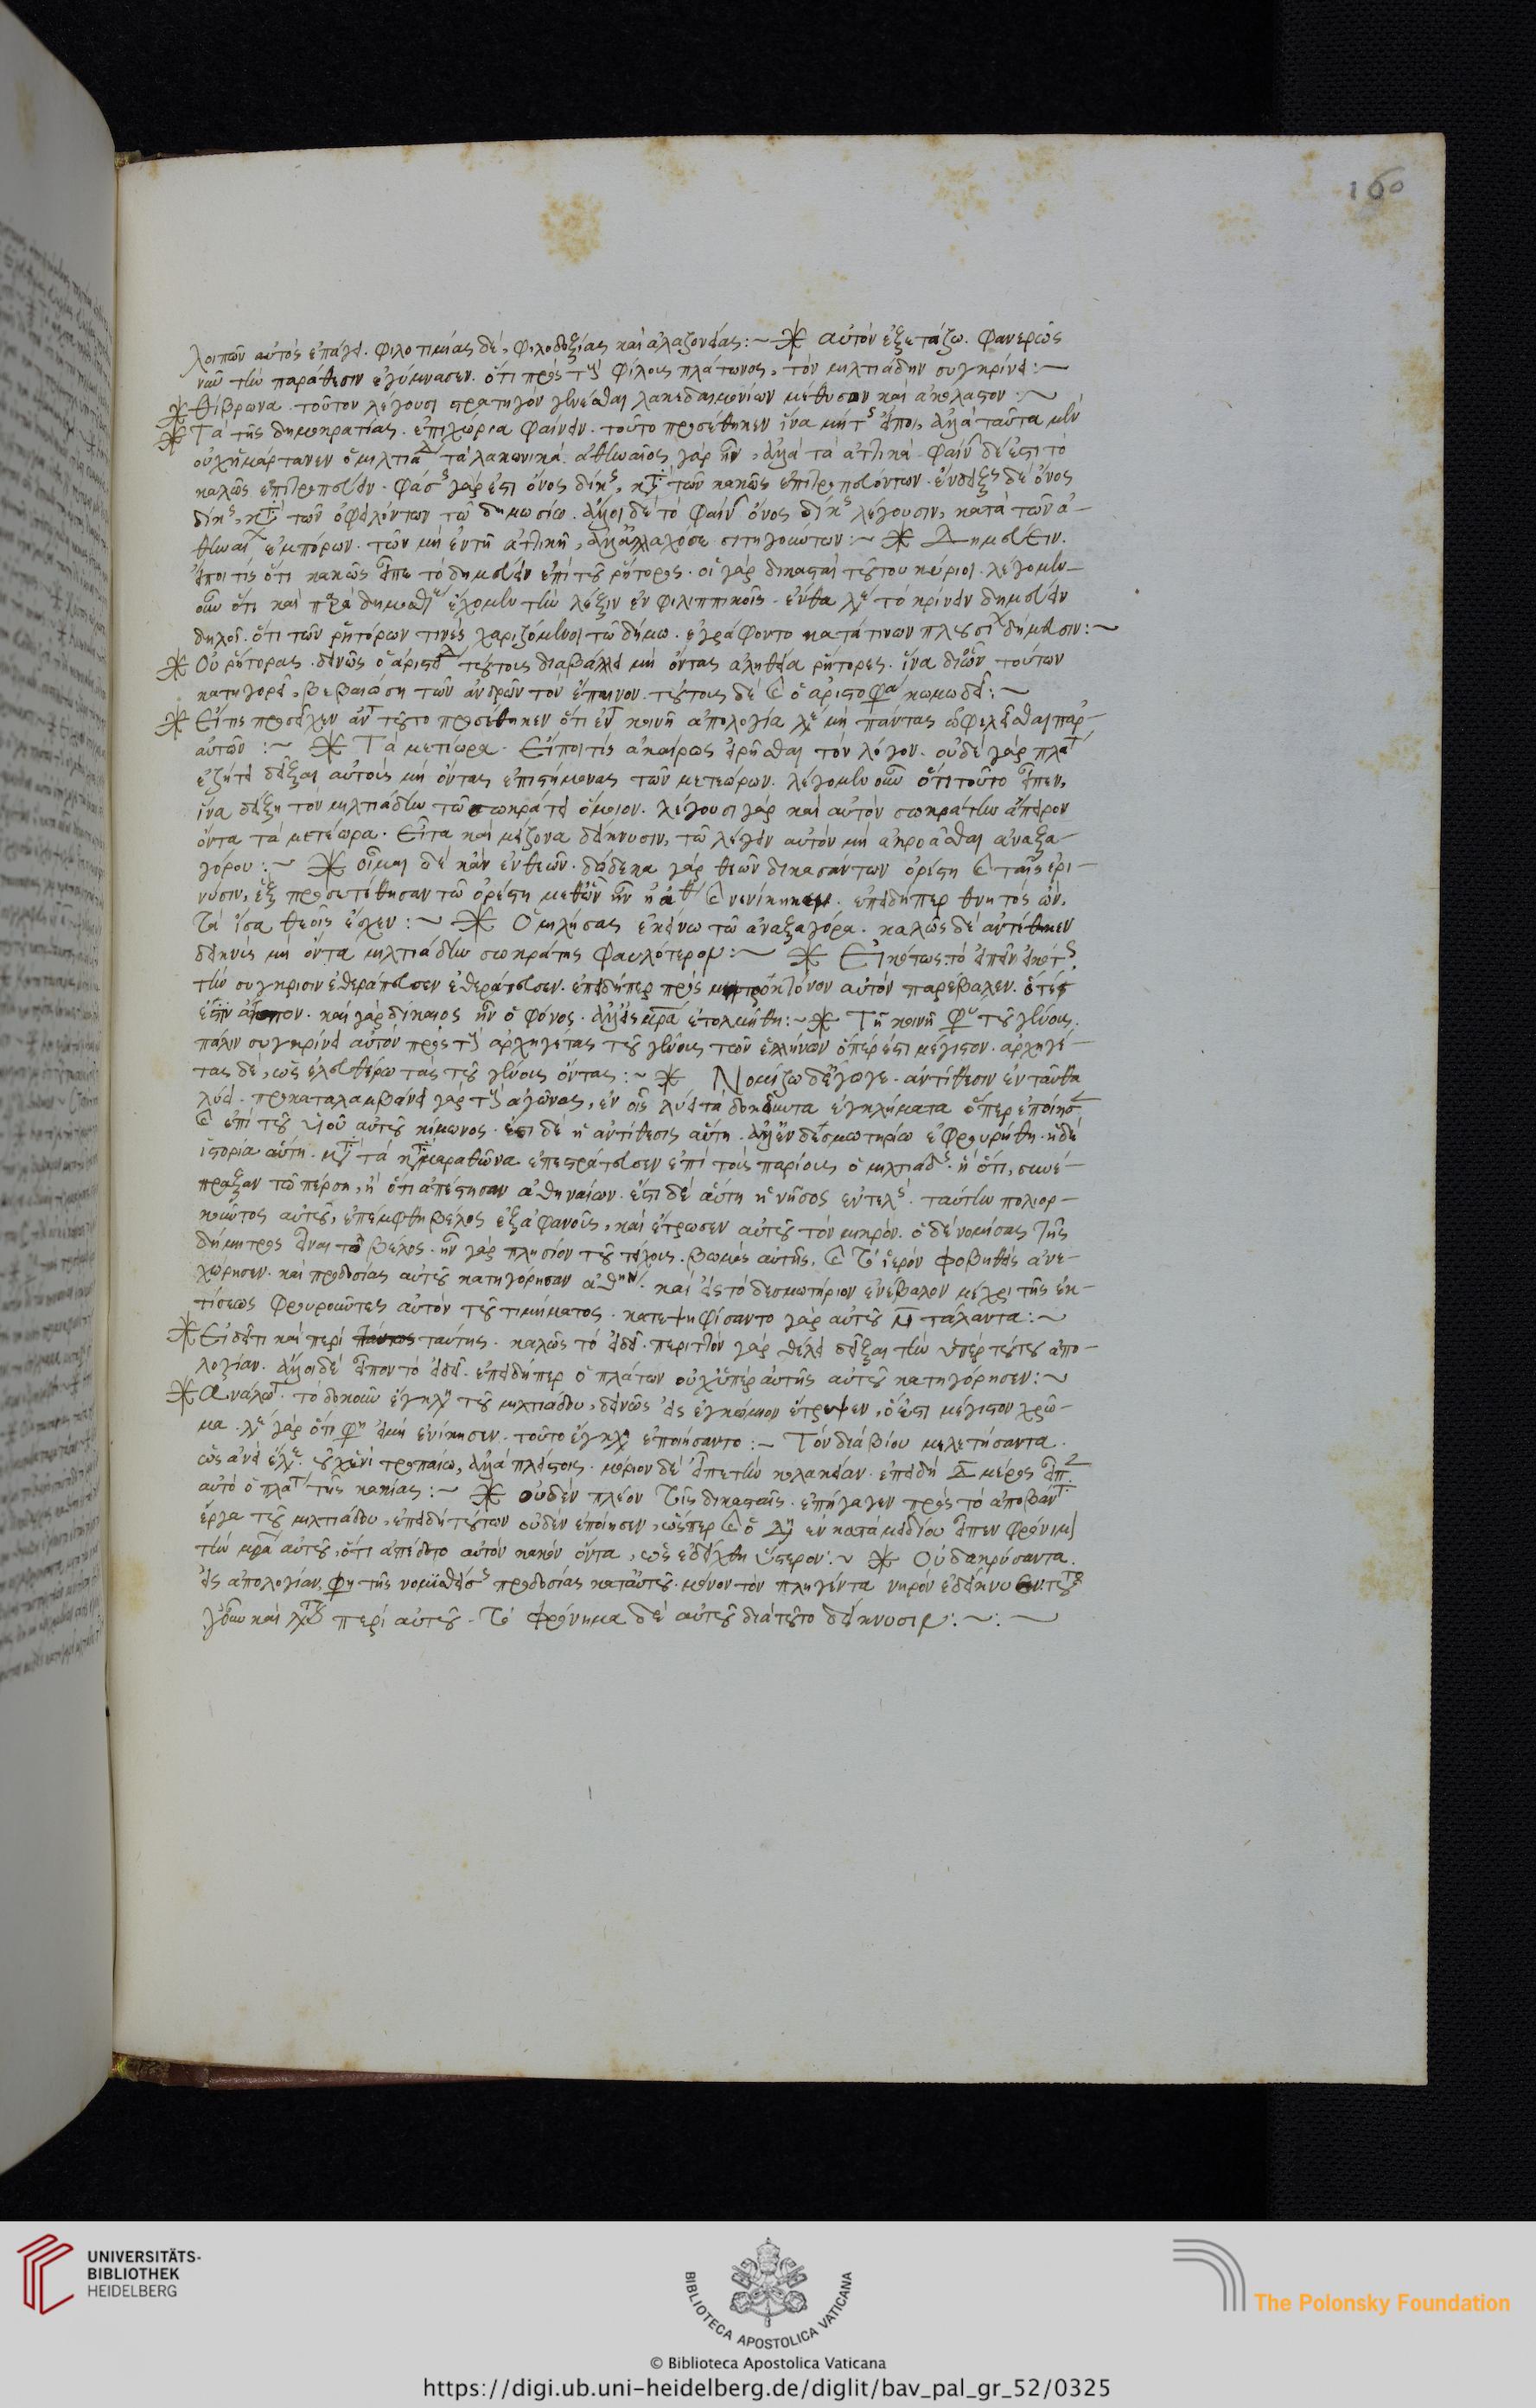 160
λοιπῶν αὐτὸς ἐπάγει. φιλοτιμίας δὲ, φιλοδοξίας καὶ ἀλαζονείας :~ ※ αὐτὸν ἐξετάζω. φανερῶς
νῦν τὴν παράθεσιν ἐγύμνασεν. ὅτι πρὸς τοὺς φίλους πλάτωνος, τὸν μιλτιάδην συγκρίνει :~
※ θίβρωνα. τοῦτον λέγουσι στρατηγὸν γενέσθαι λακεδαιμονίων μέθυσον καὶ ἀκόλαστον :~
※ Τὰ τῆς δημοκρατίας. ἐπιχώρια φαίνειν. τοῦτο προσέθηκεν ἵνα μήτις εἴποι, ἀλλὰ ταῦτα μὲν
οὐχ ἡμάρτανεν ὁ μιλτιάδ τὰ λακωνικά. ἀθηναῖος γὰρ ἦν, ἀλλὰ τὰ ἀττικά. φαίν δέ ἐστι τὸ
καλῶς ἐπιτροπεύειν. φάσις γάρ ἐστι ὄνομα δίκης, κατὰ τῶν κακῶς ἐπιτροπευόντων. ἔνδειξις δὲ ὄνομα
δίκης, κατὰ τῶν ὀφειλόντων τῷ δημοσίῳ. ἄλλοι δὲ τὸ φαίν ὄνομα δίκης λέγουσιν, κατὰ τῶν ἀ-
θηναι ἐμπόρων. τῶν μὴ ἐν τῇ ἀττικῇ, ἀλλ' ἀλλαχόσε σιτηγούντων :~ ※ Δημεύειν.
εἴποι τις ὅτι κακῶς εἶπε τὸ δημεύειν ἐπὶ τοῦ ῥήτορος. οἱ γὰρ δικασταὶ τούτου κύριοι. λέγομεν
οὖν ὅτι καὶ παρὰ δημοσθ ἔχομεν τὴν λέξιν ἐν φιλιππικοῖς. ἔνθα λέγει τὸ κρίνειν δημεύειν
δηλοῖ. ὅτι τῶν ῥητόρων τινὲς χαριζόμενοι τῷ δήμῳ. ἐγράφοντο κατά τινων πλουσί δήμευσιν :~
※ Οὐ ῥήτορας. δεινῶς ὁ ἀριστεί τούτοις διαβάλλει μὴ ὄντας ἀληθεία ῥήτορες. ἵνα δι' ὧν τούτων
κατηγορεῖ, βεβαιώσῃ τῶν ἀνδρῶν τὸν ἔπαινον. τούτοις δὲ καὶ ὁ ἀριστοφά κωμωδεῖ :~
※ Εἴ τις προσεῖχεν ἂν τοῦτο προσέθηκεν ὅτι ἐν τῇ κοινῇ ἀπολογία λέγει μὴ πάντας ὠφελεῖσθαι παρ'
αὐτῶν :~ ※ Τὰ μετέωρα. Εἴποι τις ἀκαίρως εἰρῆσθαι τὸν λόγον. οὐδὲ γὰρ πλάτ
ἐζήτει δεῖξαι αὐτοὺς μὴ ὄντας ἐπιστήμονας τῶν μετεώρων. λέγομεν οὖν ὅτι τοῦτο εἶπεν,
ἵνα δείξῃ τὸν μιλτιάδην τῷ σωκράτει ὅμοιον. λέγουσι γὰρ καὶ αὐτὸν σωκράτην ἄπειρον
ὄντα τὰ μετέωρα. Εἶτα καὶ μείζονα δείκνυσιν, τῷ λέγειν αὐτὸν μὴ ἀκροᾶσθαι ἀναξα-
γόρου :~ ※ οἶμαι δὲ κἂν ἐν θεῶν. δώδεκα γὰρ θεῶν δικασάντων ὀρέστῃ καὶ ταῖς ἐρι-
νύσιν, ἓξ προσετέθησαν τῷ ὀρέστῃ μεθ' ὧν ἦν ἡ ἀθ καὶ νενίκηκεν. ἐπειδήπερ θνητὸς ὢν,
τὰ ἴσα θεοῖς ἔσχεν :~ ※ Ὁμιλήσας ἐκείνῳ τῷ ἀναξαγόρᾳ. καλῶς δὲ ἀντέθηκεν
δεικνὺς μὴ ὄντα μιλτιάδην σωκράτης φαυλότερον :~ ※ Εἰκότως. τὸ εἰπεῖν εἰκότως
τὴν σύγκρισιν ἐθεράπευσεν ἐθεράπευσεν. ἐπειδήπερ πρὸς μητροκτόνον αὐτὸν παρέβαλεν.
ἐστιν ἄτοπον. καὶ γὰρ δίκαιος ἦν ὁ φόνος. ἀλλ' εἰς μητέρα ἐτολμήθη :~ ※ Τῇ κοινῇ τοῦ γένους.
πάλιν συγκρίνει αὐτὸν πρὸς τοὺς ἀρχηγέτας τοῦ γένους τῶν ἑλλήνων ὅπερ ἐστὶ μέγιστον. ἀρχηγέ-
τας δὲ, ὡς ἐλευθερωτὰς τοῦ γένους ὄντας :~ ※ Νομίζω δὲ ἔγωγε. ἀντίθεσιν ἐνταῦθα
λύει. προκαταλαμβάνει γὰρ τοὺς ἀγῶνας, ἐν οἷς λύει τὰ δοκοῦντα ἐγκλήματα ὅπερ ἐποίησε
καὶ ἐπὶ τοῦ υἱοῦ αὐτοῦ κίμωνος. ἔστι δὲ ἡ ἀντίθεσις αὕτη. ἀλλ' ἐν δεσμωτηρίῳ ἐφρουρήθη. ἡ δὲ
ἱστορία αὕτη. μετὰ τὰ κατὰ μαραθῶνα ἐπεστράτευσεν ἐπὶ τοὺς παρίους ὁ μιλτιάδης. ἢ ὅτι, συνέ-
πραξαν τῷ πέρσῃ, ἢ ὅτι ἀπέστησαν ἀθηναίων. ἔστι δὲ αὕτη ἡ νῆσος εὐτελής. ταύτην πολιορ-
κοῦντος αὐτοῦ, ἐπέμφθη βέλος ἐξ ἀφανοῦς, καὶ ἔτρωσεν αὐτοῦ τὸν μηρόν. ὁ δὲ νομίσας τῆς
δήμητρος εἶναι τὸ βέλος. ἦν γὰρ πλησίον τοῦ τείχους. βωμὸς αὐτῆς, καὶ τὸ ἱερὸν φοβηθεὶς ἀνε-
χώρησεν. καὶ προδοσίας αὐτοῦ κατηγόρησαν ἀθην. καὶ εἰς τὸ δεσμωτήριον ἐνέβαλον μέχρι τῆς ἐκ-
τίσεως φρουροῦντες αὐτὸν τοῦ τιμήματος. κατεψηφίσαντο γὰρ αὐτοῦ ν τάλαντα :~
※ Εἰ δέ τι καὶ περὶ ταύτης. καλῶς τὸ εἰ δεῖ. περιττὸν γὰρ θέλει δεῖξαι τὴν ὑπὲρ τούτου ἀπο-
λογίαν. ἄλλοι δὲ εἶπον τὸ εἰ δεῖ. ἐπειδήπερ ὁ πλάτων οὐχ ὑπὲρ αὐτῆς αὐτοῦ κατηγόρησεν :~
※ Ἀνάλωτ. τὸ δοκοῦν ἔγκλημα τοῦ μιλτιάδου, δεινῶς εἰς ἐγκώμιον ἔτρεψεν, ὅ ἐστι μέγιστον χρῶ-
μα. λέγει γὰρ ὅτι φη εἰ μὴ ἐνίκησεν. τοῦτο ἔγκλημα ἐποιήσαντο :~ Τὸν διὰ βίου μελετήσαντα.
οὐχ ἑνὶ τροπαίῳ, ἀλλὰ πλείστοις. μόριον δὲ εἶπε τὴν κολακείαν. ἐπειδὴ δ μέρος εἶπε
αὐτὸ ὁ πλάτ τῆς κακίας :~ ※ οὐδὲν πλέον τοῖς δικασταῖς. ἐπήγαγεν πρὸς τὸ ἀποβὰν τὰ
ἔργα τοῦ μιλτιάδου, ἐπειδὴ τούτων οὐδὲν ἐποίησεν, ὥσπερ καὶ ὁ Δη ἐν κατὰ μειδίου εἶπεν φρόνιμ
τὴν μητέρα αὐτοῦ, ὅτι ἀπέδοτο αὐτὸν κακὸν ὄντα, ὡς ἐδείχθη ὕστερον :~ ※ Οὐ δακρύσαντα.
εἰς ἀπολογίαν. φη τῆς νομισθείσης προδοσίας κατ' αὐτοῦ. μόνον τὸν πληγέντα μηρὸν ἐδείκνυ
καὶ περὶ αὐτοῦ. τὸ φρόνημα δὲ αὐτοῦ διὰ τοῦτο δείκνυσιν :~:~
UNIVERSITÄTS-
BIBLIOTHEK
HEIDELBERG
BIBLIOTECA APOSTOLICA VATICANA
The Polonsky Foundation
© Biblioteca Apostolica Vaticana
https://digi.ub.uni-heidelberg.de/diglit/bav_pal_gr_52/0325